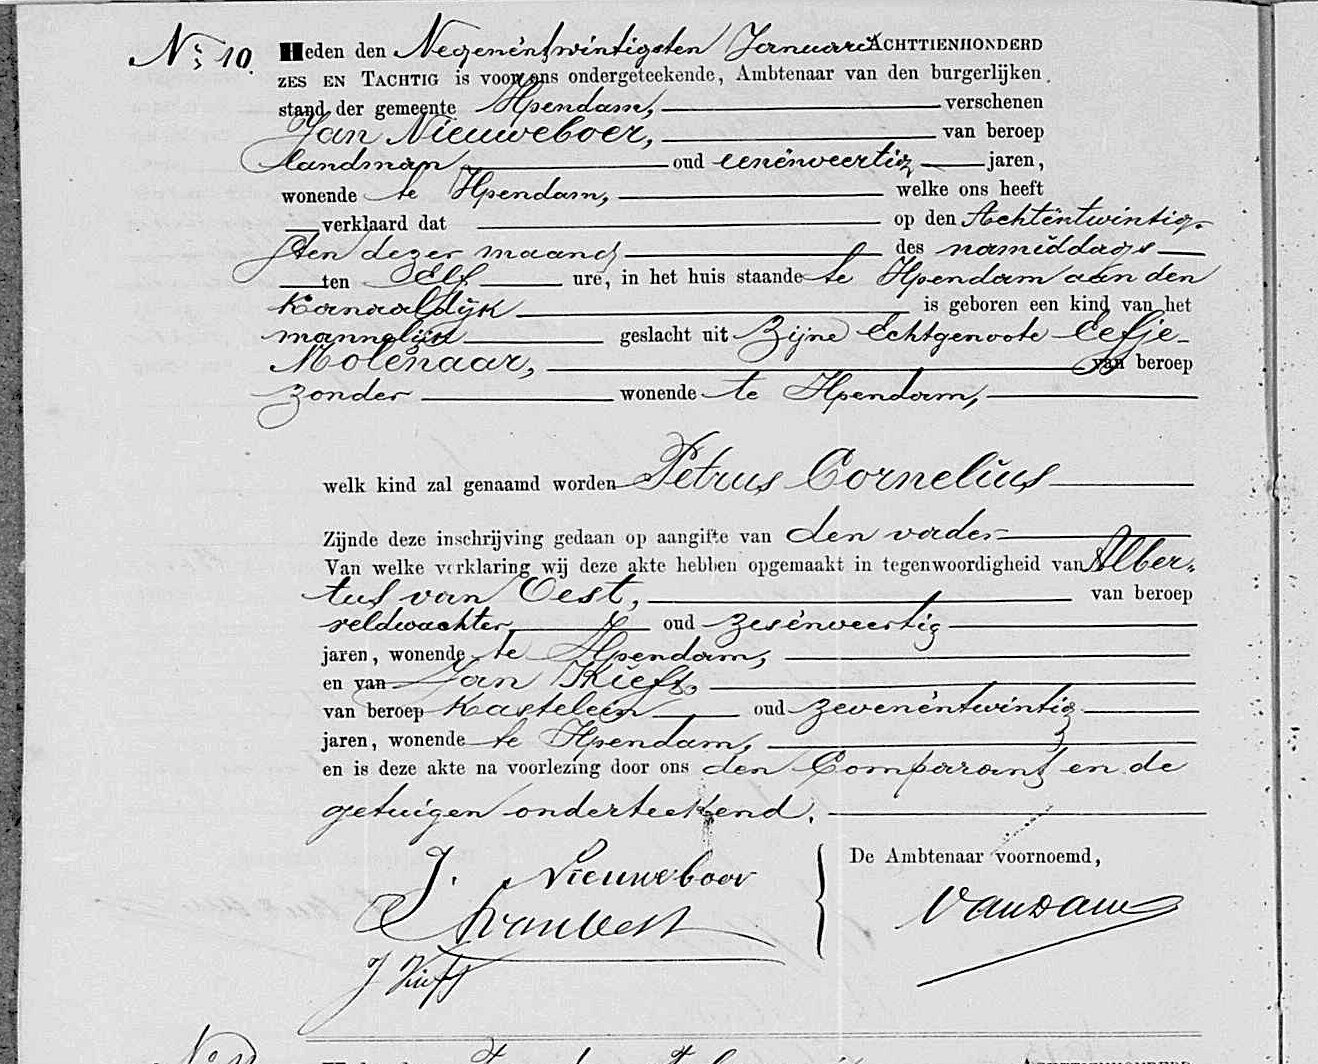 No: 10. Heden den Negenentwintigsten Januari ACHTTIENHONDERD
ZES EN TACHTIG is voor ons ondergeteekende, Ambtenaar van den burgerlijken
stand der gemeente Ilpendam, verschenen
Jan Nieuweboer, van beroep
landman, oud eenënveertig jaren,
wonende te Ilpendam, welke ons heeft
verklaard dat op den Achtëntwintig-
sten dezer maand des namiddags
ten Elf ure, in het huis staande te Ilpendam aan den
Kanaaldijk is geboren een kind van het
mannelijk geslacht uit Zijne Echtgenoote Eefje
Molenaar, van beroep
zonder wonende te Ilpendam,
welk kind zal genaamd worden Petrus Cornelius
Zijnde deze inschrijving gedaan op aangifte van den vader
Van welke verklaring wij deze akte hebben opgemaakt in tegenwoordigheid van Alber-
tus van Oest, van beroep
veldwachter, oud zesënveertig
jaren, wonende te Ilpendam,
en van Jan Kieft,
van beroep Kastelein oud zevenëntwintig
jaren, wonende te Ilpendam,
en is deze akte na voorlezing door ons den Comparant en de
getuigen onderteekend.
De Ambtenaar voornoemd,
J. Nieuweboer
A van Oest
van Dam
J Kieft